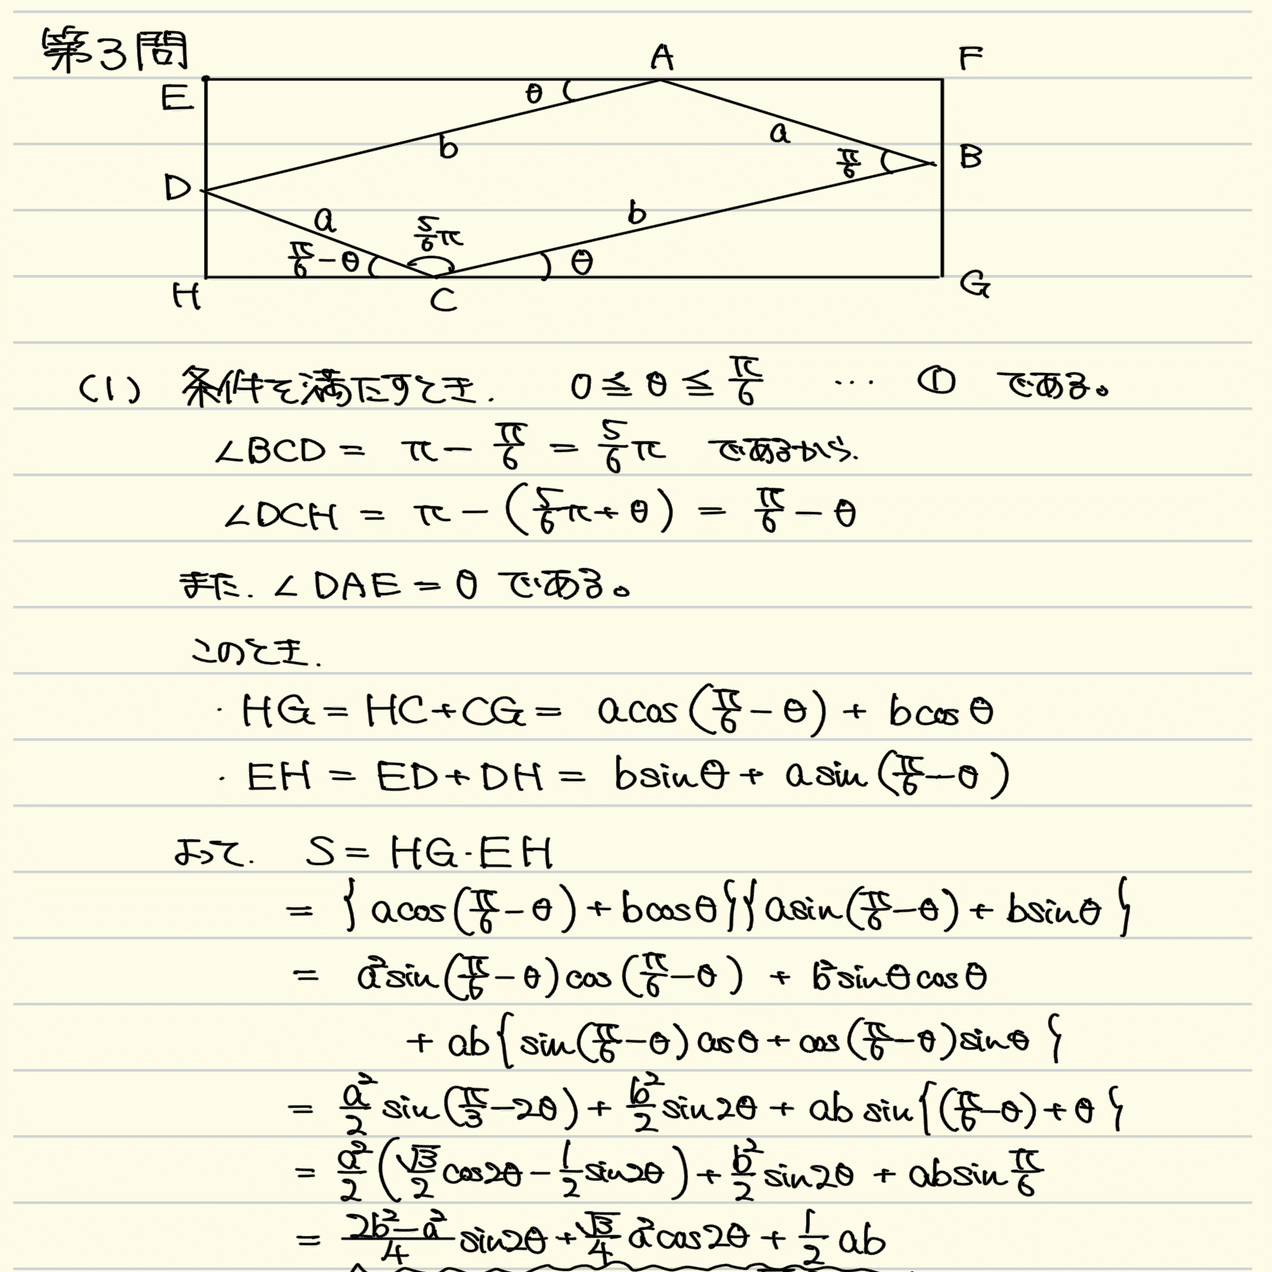 第3問
A F
E θ
b a π/6 B
D a 5/6π b
π/6-θ θ
H C G
(1) 条件を満たすとき. 0≦θ≦π/6 … ① である。
∠BCD = π-π/6 = 5/6π であるから.
∠DCH = π-(5/6π+θ) = π/6-θ
また. ∠DAE=θ である。
このとき.
・HG=HC+CG= acos(π/6-θ) + bcosθ
・EH = ED+DH = bsinθ+ asin(π/6-θ)
よって. S=HG・EH
= {acos(π/6-θ)+bcosθ}{asin(π/6-θ)+bsinθ}
= a²sin(π/6-θ)cos(π/6-θ) + b²sinθcosθ
+ab{sin(π/6-θ)cosθ+cos(π/6-θ)sinθ}
= a²/2 sin(π/3-2θ)+b²/2 sin2θ+ab sin{(π/6-θ)+θ}
= a²/2(√3/2 cos2θ-1/2 sin2θ)+b²/2 sin2θ+absinπ/6
= 2b²-a²/4 sin2θ+√3/4 a²cos2θ+1/2 ab